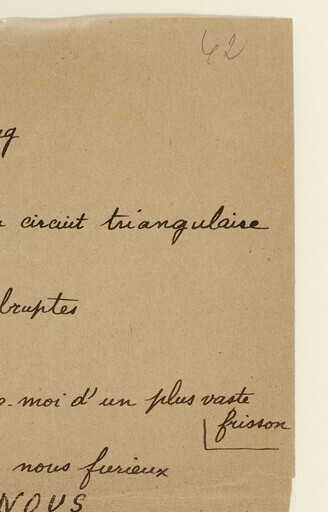 42
circuit triangulaire
bruptes
moi d'un plus vaste
frisson
nous furieux
NOUS